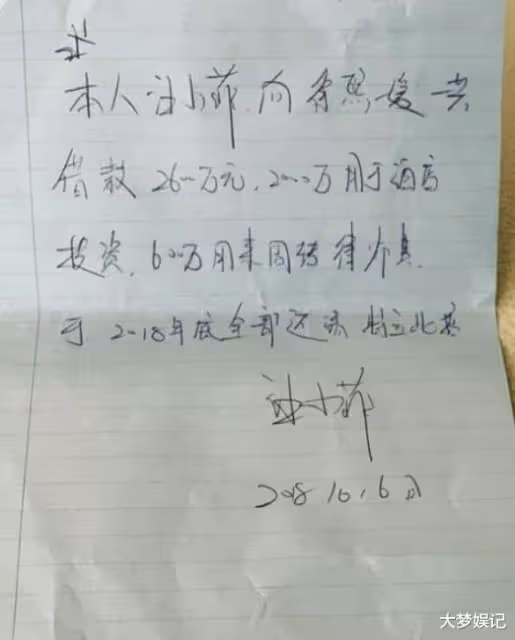 本人汪小菲向徐熙媛共
借款2600万元,2000万用于酒店
投资,600万用来周转律师费.
于2018年底全部还清 特立此据
汪小菲
2018 10.6日
大梦娱记